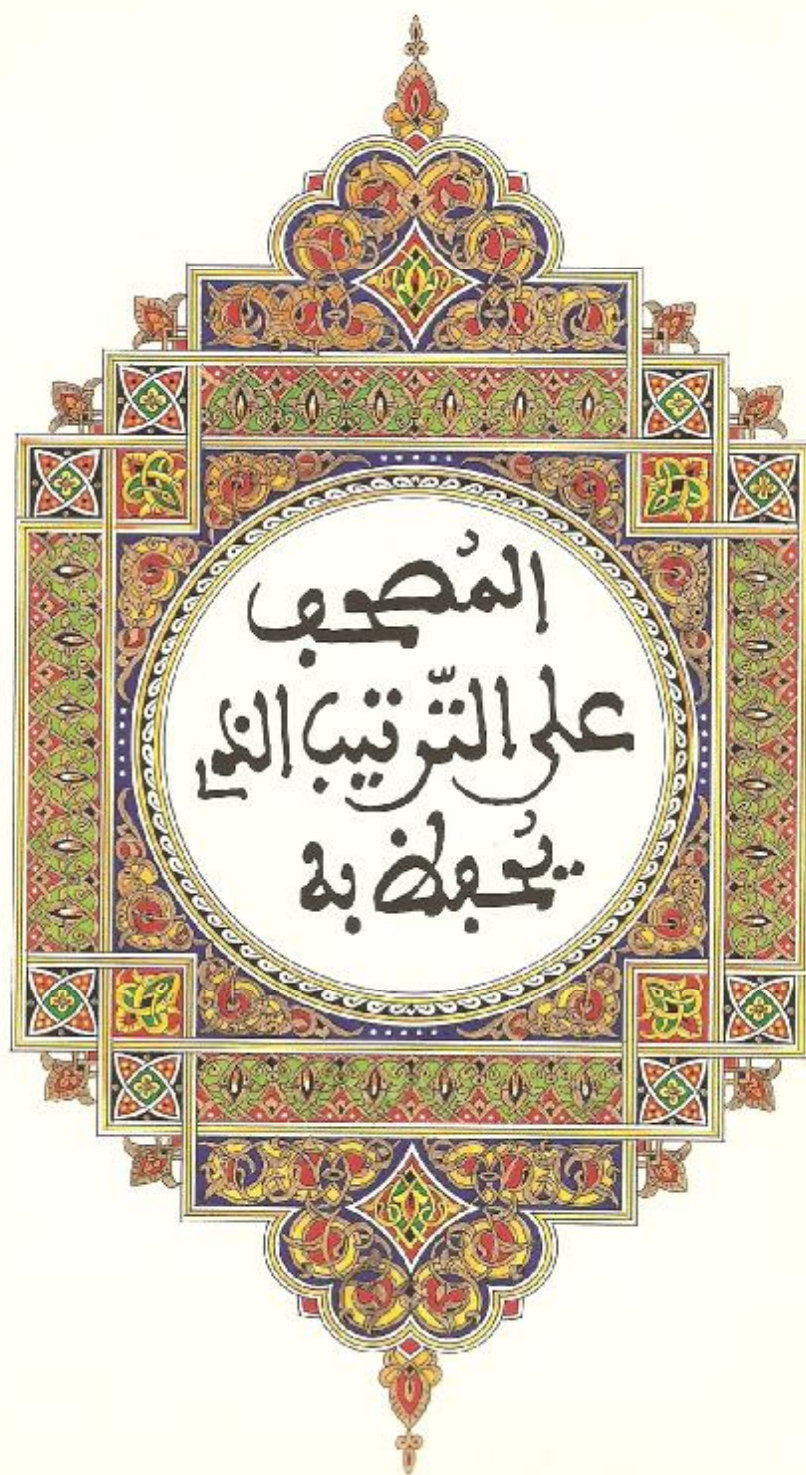 المُصحف
على التّرتيب الذي
يُحفظ به